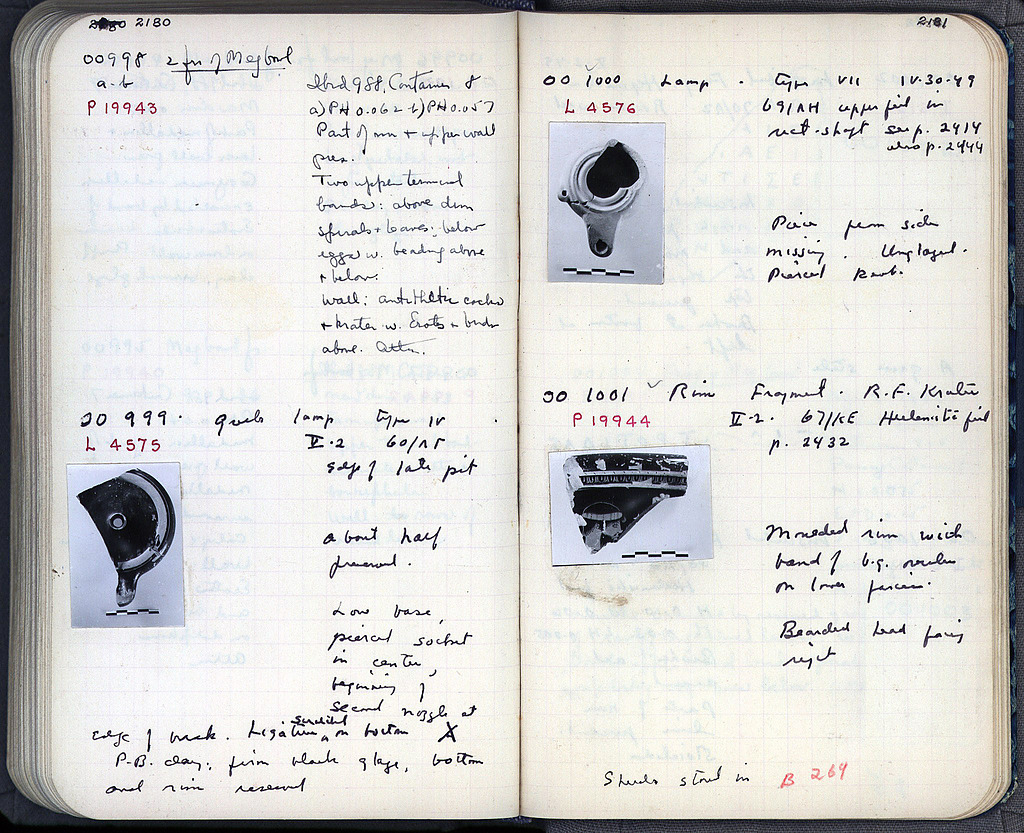 2180
OO998 2 frs of Meg bowl
a-b
P 19943
Ibid 988, Container 8
a) PH 0.062 b) PH 0.057
Part of rim + upper wall
pres.
Two upper terminal
bands: above dim
spirals + leaves; below
eggs w. beading above
+ below.
Wall: antithetic cocks
+ krater w. Erots + birds
above. Attic.
OO 999. lamp Type IV
L 4575
II-2 60/
edge of late pit
about half
preserved.
Low base,
pierced socket
in center,
beginning of
second nozzle at
edge of break. Ligature on bottom
P.B. clay; firm black glaze, bottom
and rim reserved
2181
OO 1000 Lamp. Type VII IV-30-49
L 4576
69/ upper fill in
rect. shaft see p. 2414
also p. 2444
Piece from side
missing. Unglazed.
Pierced knob.
OO 1001 Rim Fragment. R.F. Krater
P 19944
II-2. 67/KE Hellenistic fill
p. 2432
Moulded rim with
band of b.g. ovules
on lower fascia.
Bearded head facing
right
Sherds stored in B 269